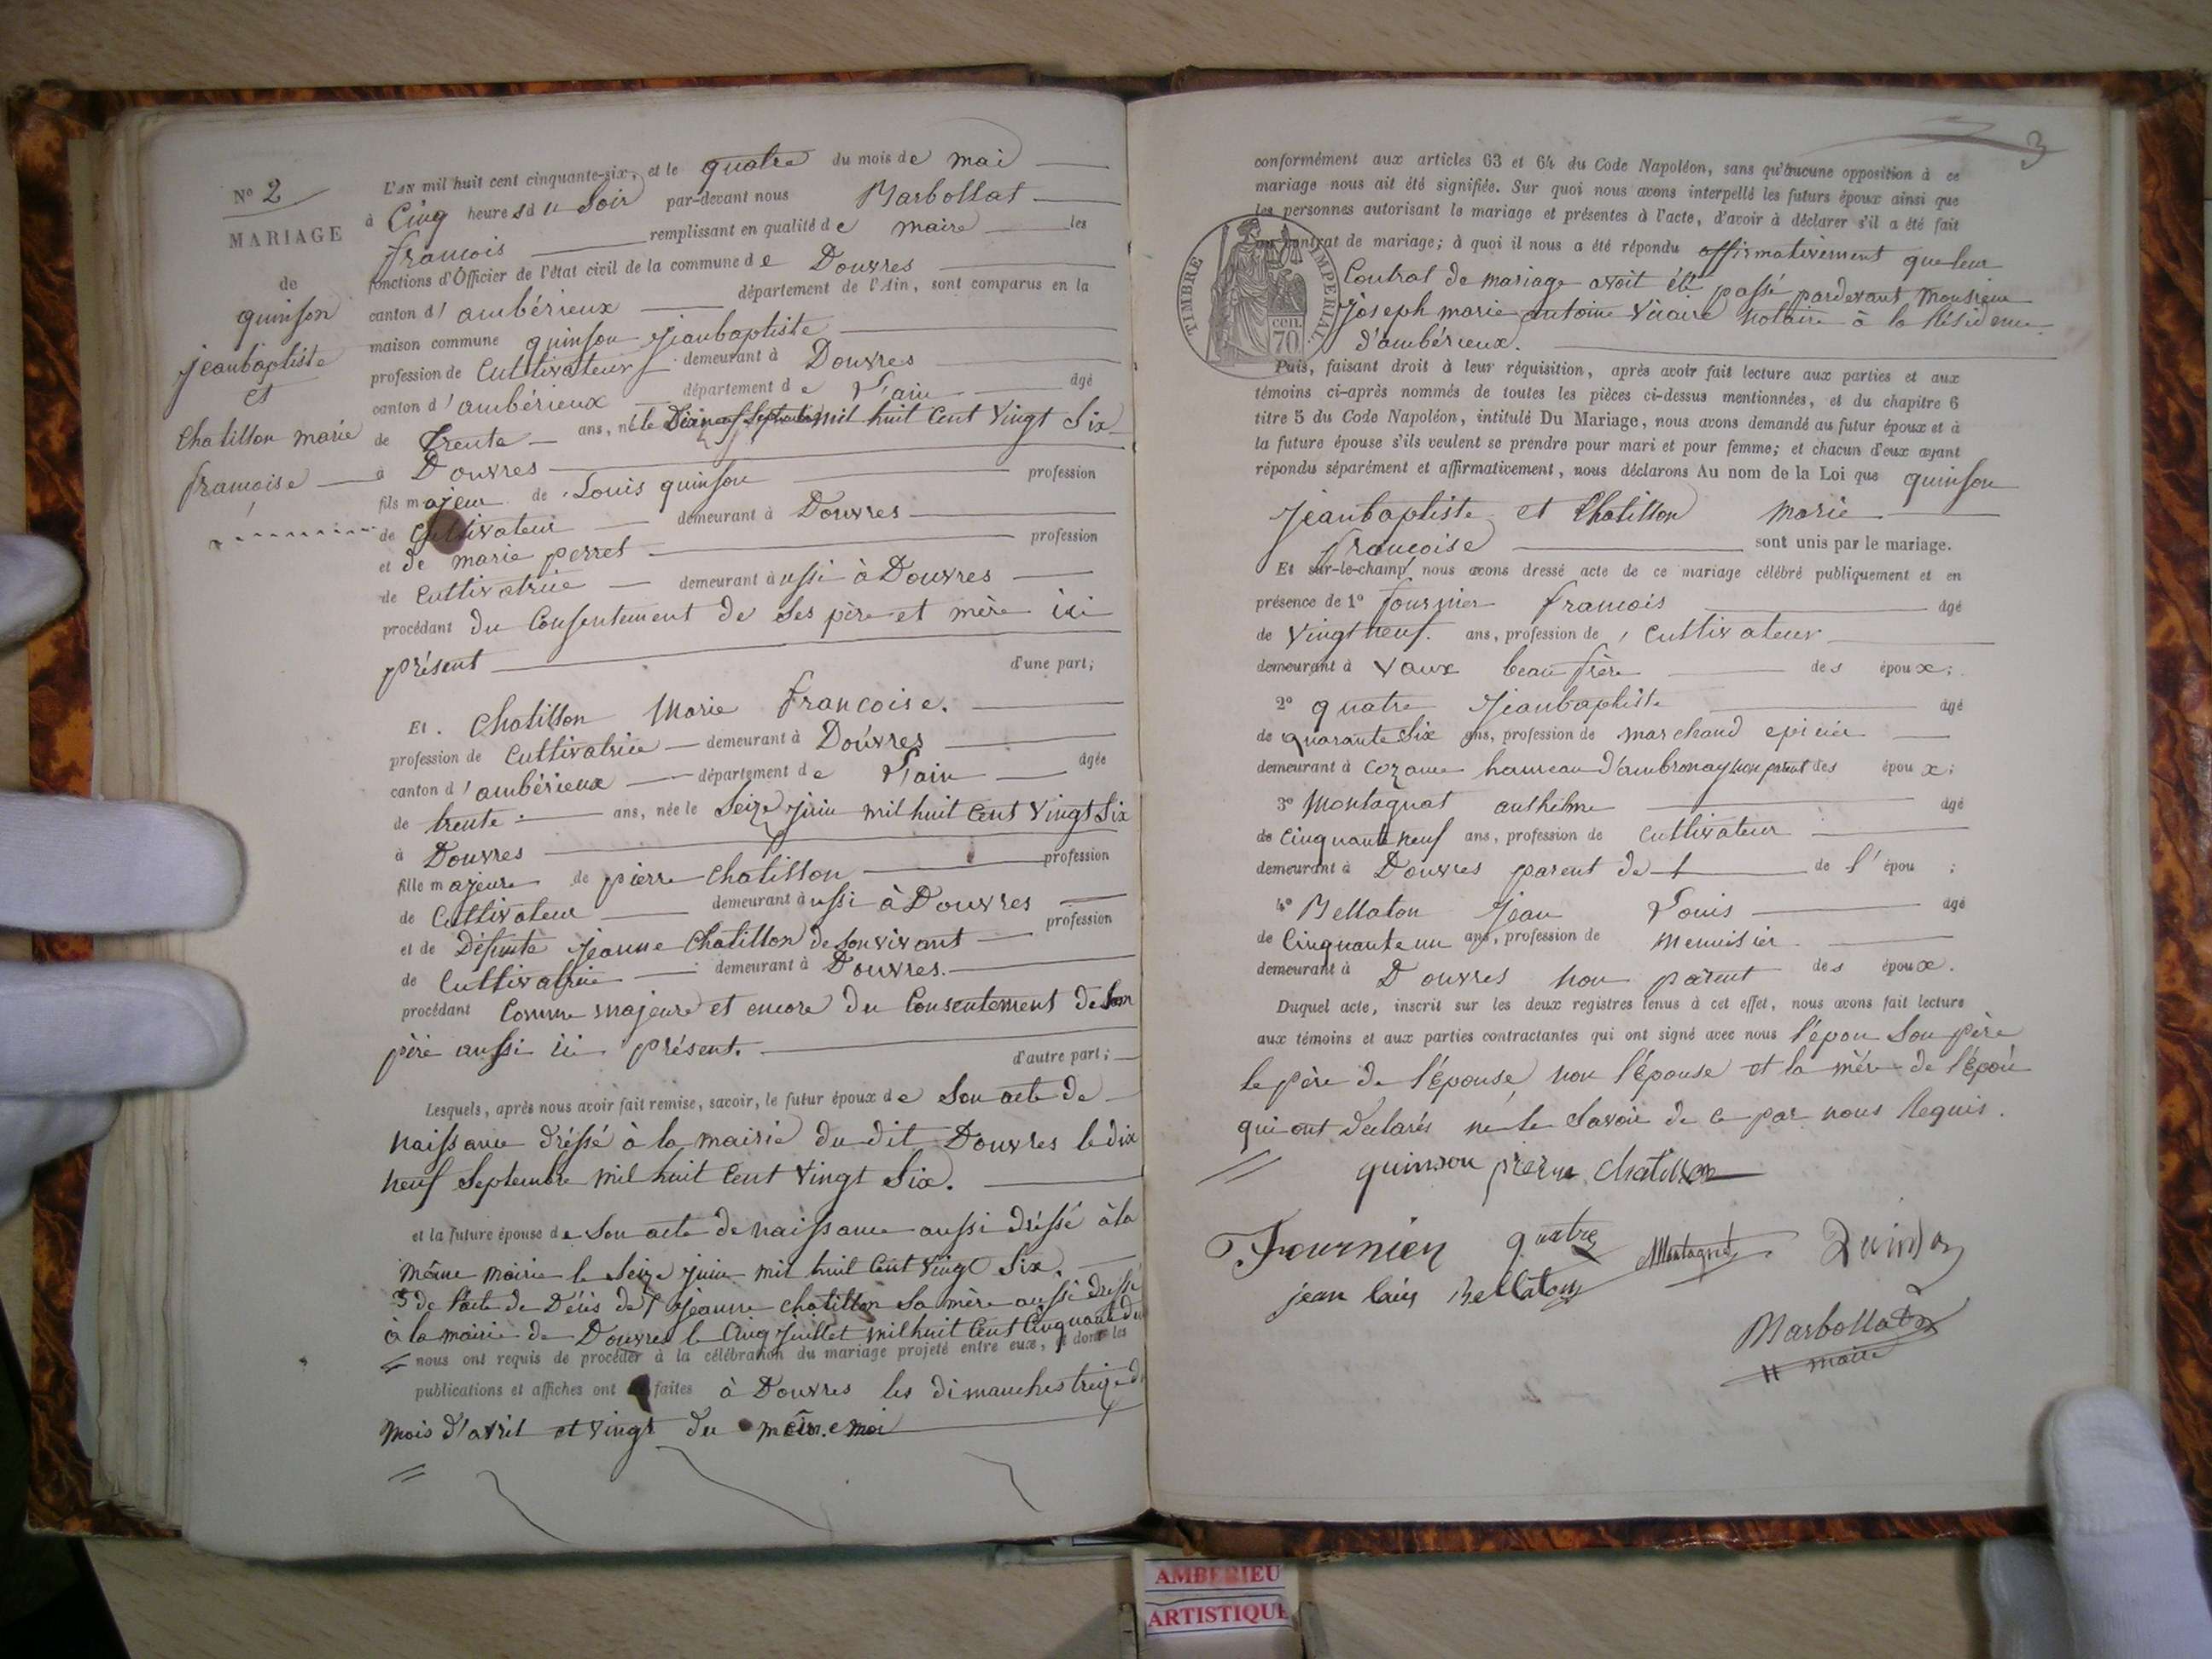 N° 2
MARIAGE
de
quinson
jeanbaptiste
et
Chatillon marie
francoise
L'AN mil huit cent cinquante-six, et le quatre du mois de mai
à Cinq heures du Soir par-devant nous Marbollat
francois remplissant en qualité de maire les
fonctions d'Officier de l'état civil de la commune de Douvres
canton d'ambérieux département de l'Ain, sont comparus en la
maison commune quinson jeanbaptiste
profession de Cultivateur demeurant à Douvres
canton d'ambérieux département de l'ain âgé
de trente ans, né le Dixneuf Septembre mil huit Cent Vingt Six
à Douvres
fils majeur de Louis quinson profession
de Cultivateur demeurant à Douvres
et de marie perret profession
de Cultivatrice demeurant aussi à Douvres
procédant du Consentement de Ses père et mère ici
présent d'une part;
Et. Chatillon Marie francoise.
profession de Cultivatrice demeurant à Douvres
canton d'ambérieux département de l'ain âgée
de trente ans, née le Seize juin mil huit Cent Vingt Six
à Douvres
fille majeure de pierre Chatillon profession
de Cultivateur demeurant aussi à Douvres
et de Défunte jeanne Chatillon de Son vivant profession
de Cultivatrice demeurant à Douvres.
procédant Comme majeure et encore du Consentement de Son
père aussi ici présent. d'autre part;
Lesquels, après nous avoir fait remise, savoir, le futur époux de Son acte de
naissance dréssé à la mairie du dit Douvres le dix
neuf Septembre mil huit Cent Vingt Six.
et la future épouse de Son acte de naissance aussi dréssé à la
même mairie le Seize juin mil huit Cent Vingt Six.
de l'acte de Décès de jeanne chatillon Sa mère aussi dréssé
à la mairie de Douvres le Cinq juillet mil huit Cent Cinquante
nous ont requis de procéder à la célébration du mariage projeté entre eux, et dont les
publications et affiches ont été faites à Douvres les dimanches treize
mois d'avril et vingt du même moi
3
conformément aux articles 63 et 64 du Code Napoléon, sans qu'aucune opposition à ce
mariage nous ait été signifiée. Sur quoi nous avons interpellé les futurs époux ainsi que
les personnes autorisant le mariage et présentes à l'acte, d'avoir à déclarer s'il a été fait
un contrat de mariage; à quoi il nous a été répondu affirmativement que leur
Contrat de mariage avoit été passé pardevant Monsieur
joseph marie antoine notaire à la Résidence
d'ambérieux.
TIMBRE IMPERIAL
cen.
70
Puis, faisant droit à leur réquisition, après avoir fait lecture aux parties et aux
témoins ci-après nommés de toutes les pièces ci-dessus mentionnées, et du chapitre 6
titre 5 du Code Napoléon, intitulé Du Mariage, nous avons demandé au futur époux et à
la future épouse s'ils veulent se prendre pour mari et pour femme; et chacun d'eux ayant
répondu séparément et affirmativement, nous déclarons Au nom de la Loi que quinson
jeanbaptiste et Chatillon Marie
francoise sont unis par le mariage.
Et sur-le-champ nous avons dressé acte de ce mariage célébré publiquement et en
présence de 1° fournier francois âgé
de Vingt neuf. ans, profession de Cultivateur
demeurant à Vaux beau frère des époux;
2° quatre jeanbaptiste âgé
de quarante Six ans, profession de marchand epicier
demeurant à Cozance hameau d'ambronay non parent des époux;
3° Montagnat anthelme âgé
de Cinquante neuf ans, profession de Cultivateur
demeurant à Douvres parent de de l'épou ;
4° Bellaton Jean Louis âgé
de Cinquante un ans, profession de Menuisier
demeurant à Douvres non parent des époux.
Duquel acte, inscrit sur les deux registres tenus à cet effet, nous avons fait lecture
aux témoins et aux parties contractantes qui ont signé avec nous l'épou Son père
le père de l'épouse, non l'épouse et la mère de l'épou
qui ont déclarés ne le Savoir de ce par nous Requis.
quinson pierre Chatillon
Fournier quatre Montagnat Quinson
jean Bellaton
Marbollat
maire
AMBERIEU
ARTISTIQUE